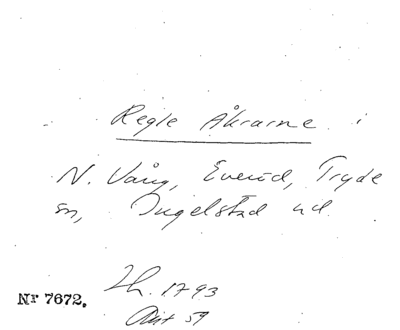 Regle Åkrarne i
N. Vång, Everöd, Tryde
sn, Ingelstad hd.
Lh. 1793
Akt 59
Nr 7672.